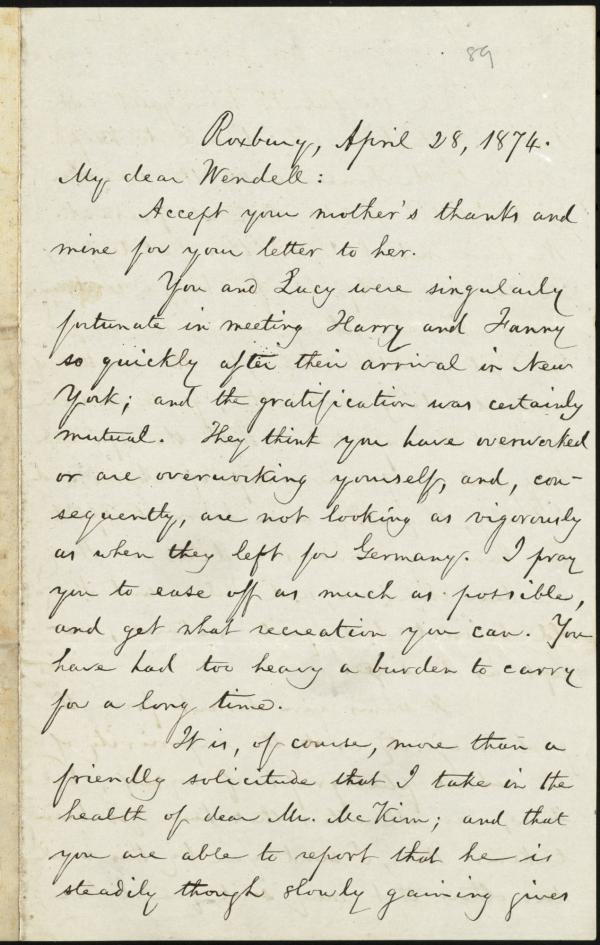 89
Roxbury, April 28, 1874.
My dear Wendell:
Accept your mother's thanks and
mine for your letter to her.
You and Lucy were singularly
fortunate in meeting Harry and Fanny
so quickly after their arrival in New
York; and the gratification was certainly
mutual. They think you have overworked
or are overworking yourself, and, con-
sequently, are not looking as vigorously
as when they left for Germany. I pray
you to ease off as much as possible,
and get what recreation you can. You
have had too heavy a burden to carry
for a long time.
It is, of course, more than a
friendly solicitude that I take in the
health of dear Mr. McKim; and that
you are able to report that he is
steadily though slowly gaining gives